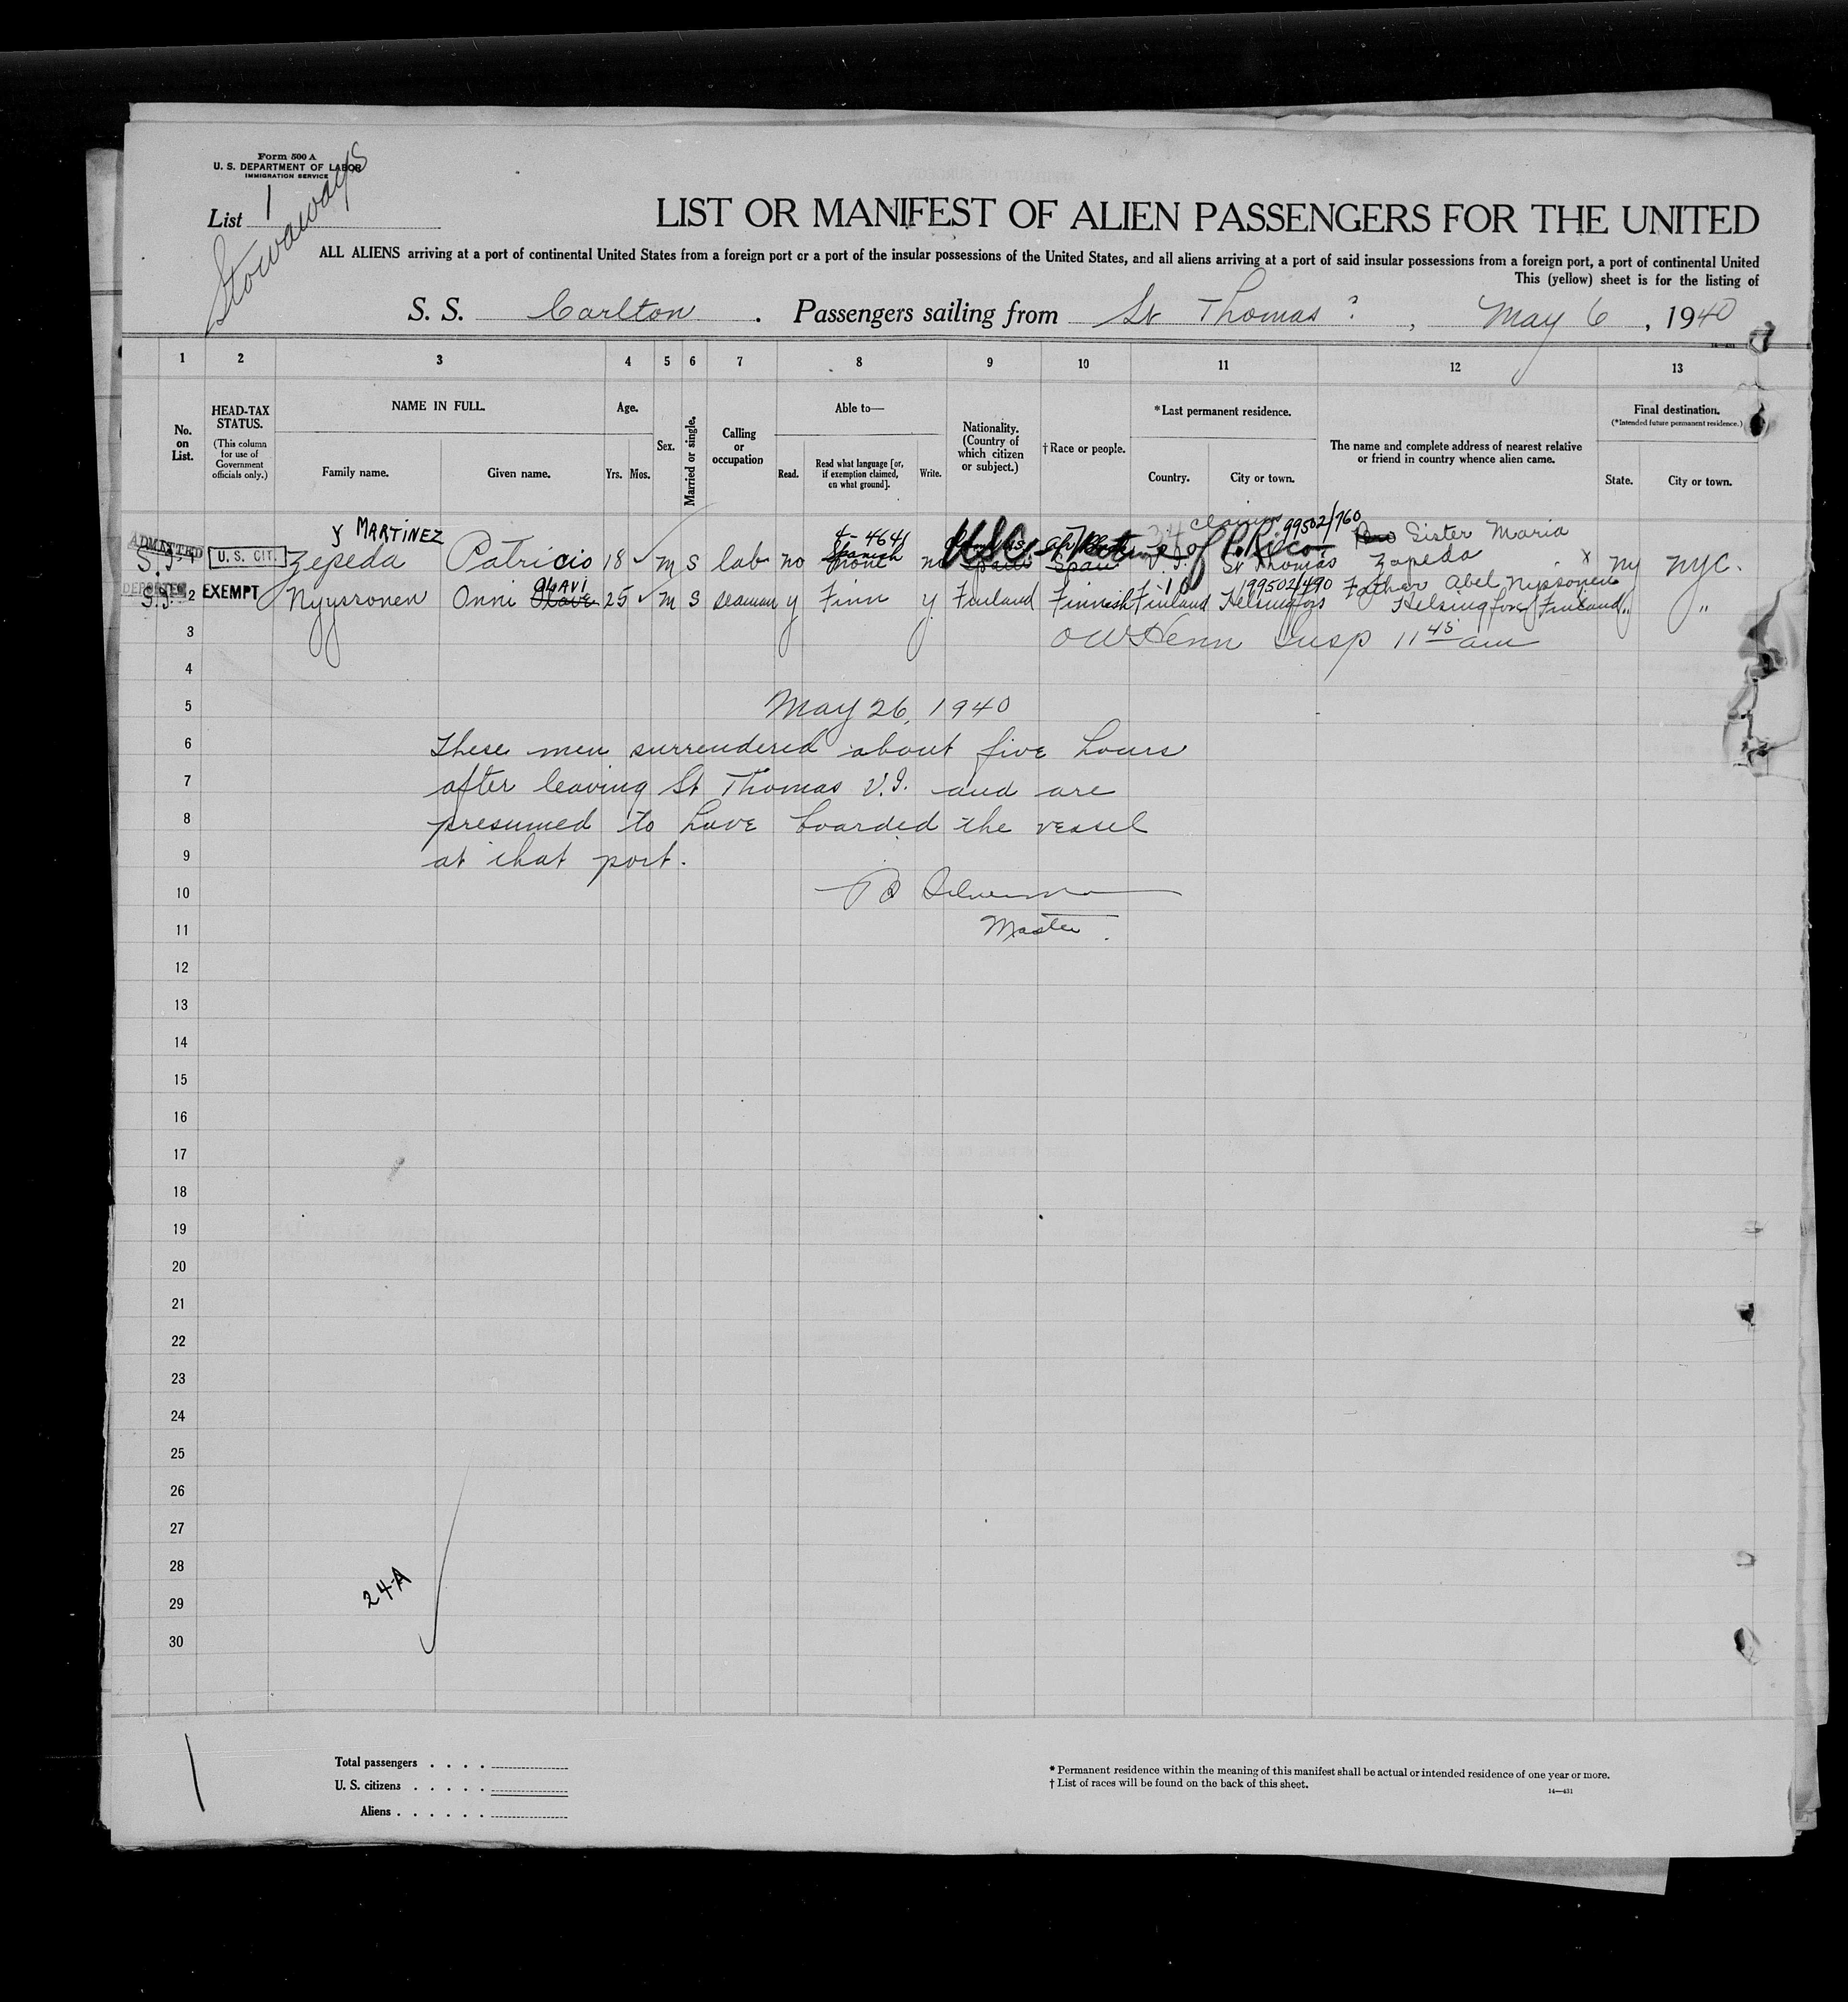 Form 500 A
U. S. DEPARTMENT OF LABOR
IMMIGRATION SERVICE
List 1
Stowaways
LIST OR MANIFEST OF ALIEN PASSENGERS FOR THE UNITED
ALL ALIENS arriving at a port of continental United States from a foreign port or a port of the insular possessions of the United States, and all aliens arriving at a port of said insular possessions from a foreign port, a port of continental United
This (yellow) sheet is for the listing of
S. S. Carlton . Passengers sailing from St Thomas ? , May 6 , 1940
14—431
1 2 3 4 5 6 7 8 9 10 11 12 13
No. on List.
HEAD-TAX STATUS. (This column for use of Government officials only.)
NAME IN FULL.
Family name. Given name.
Age.
Yrs. Mos.
Sex.
Married or single.
Calling or occupation
Able to—
Read. Read what language [or, if exemption claimed, on what ground]. Write.
Nationality. (Country of which citizen or subject.)
†Race or people.
*Last permanent residence.
Country. City or town.
The name and complete address of nearest relative or friend in country whence alien came.
Final destination. (*Intended future permanent residence.)
State. City or town.
y MARTINEZ 8-4641 claims 99502/760
ADMITTED S.I. 1 U. S. CIT. Zepeda Patricio 18 m S lab no Spanish none no USC Spain native of P. Rico V.I. St Thomas Sister Maria Zapeda x NY NYC.
OLAVI 199502/490
DEPORTED S.I. 2 EXEMPT Nyyssonen Onni 25 m S seaman y Finn y Finland Finnish Finland Helsingfors Father Abel Nyssonen Helsingfors Finland " "
3 OW Henn Insp 11 45 am
4
5 May 26, 1940
6 These men surrendered about five hours
7 after leaving St Thomas V.I. and are
8 presumed to have boarded the vessel
9 at that port.
10
11 Master.
12
13
14
15
16
17
18
19
20
21
22
23
24
25
26
27
28
29
30
24-A
Total passengers . . . .
U. S. citizens . . . . .
Aliens . . . . . .
* Permanent residence within the meaning of this manifest shall be actual or intended residence of one year or more.
† List of races will be found on the back of this sheet.
14—431